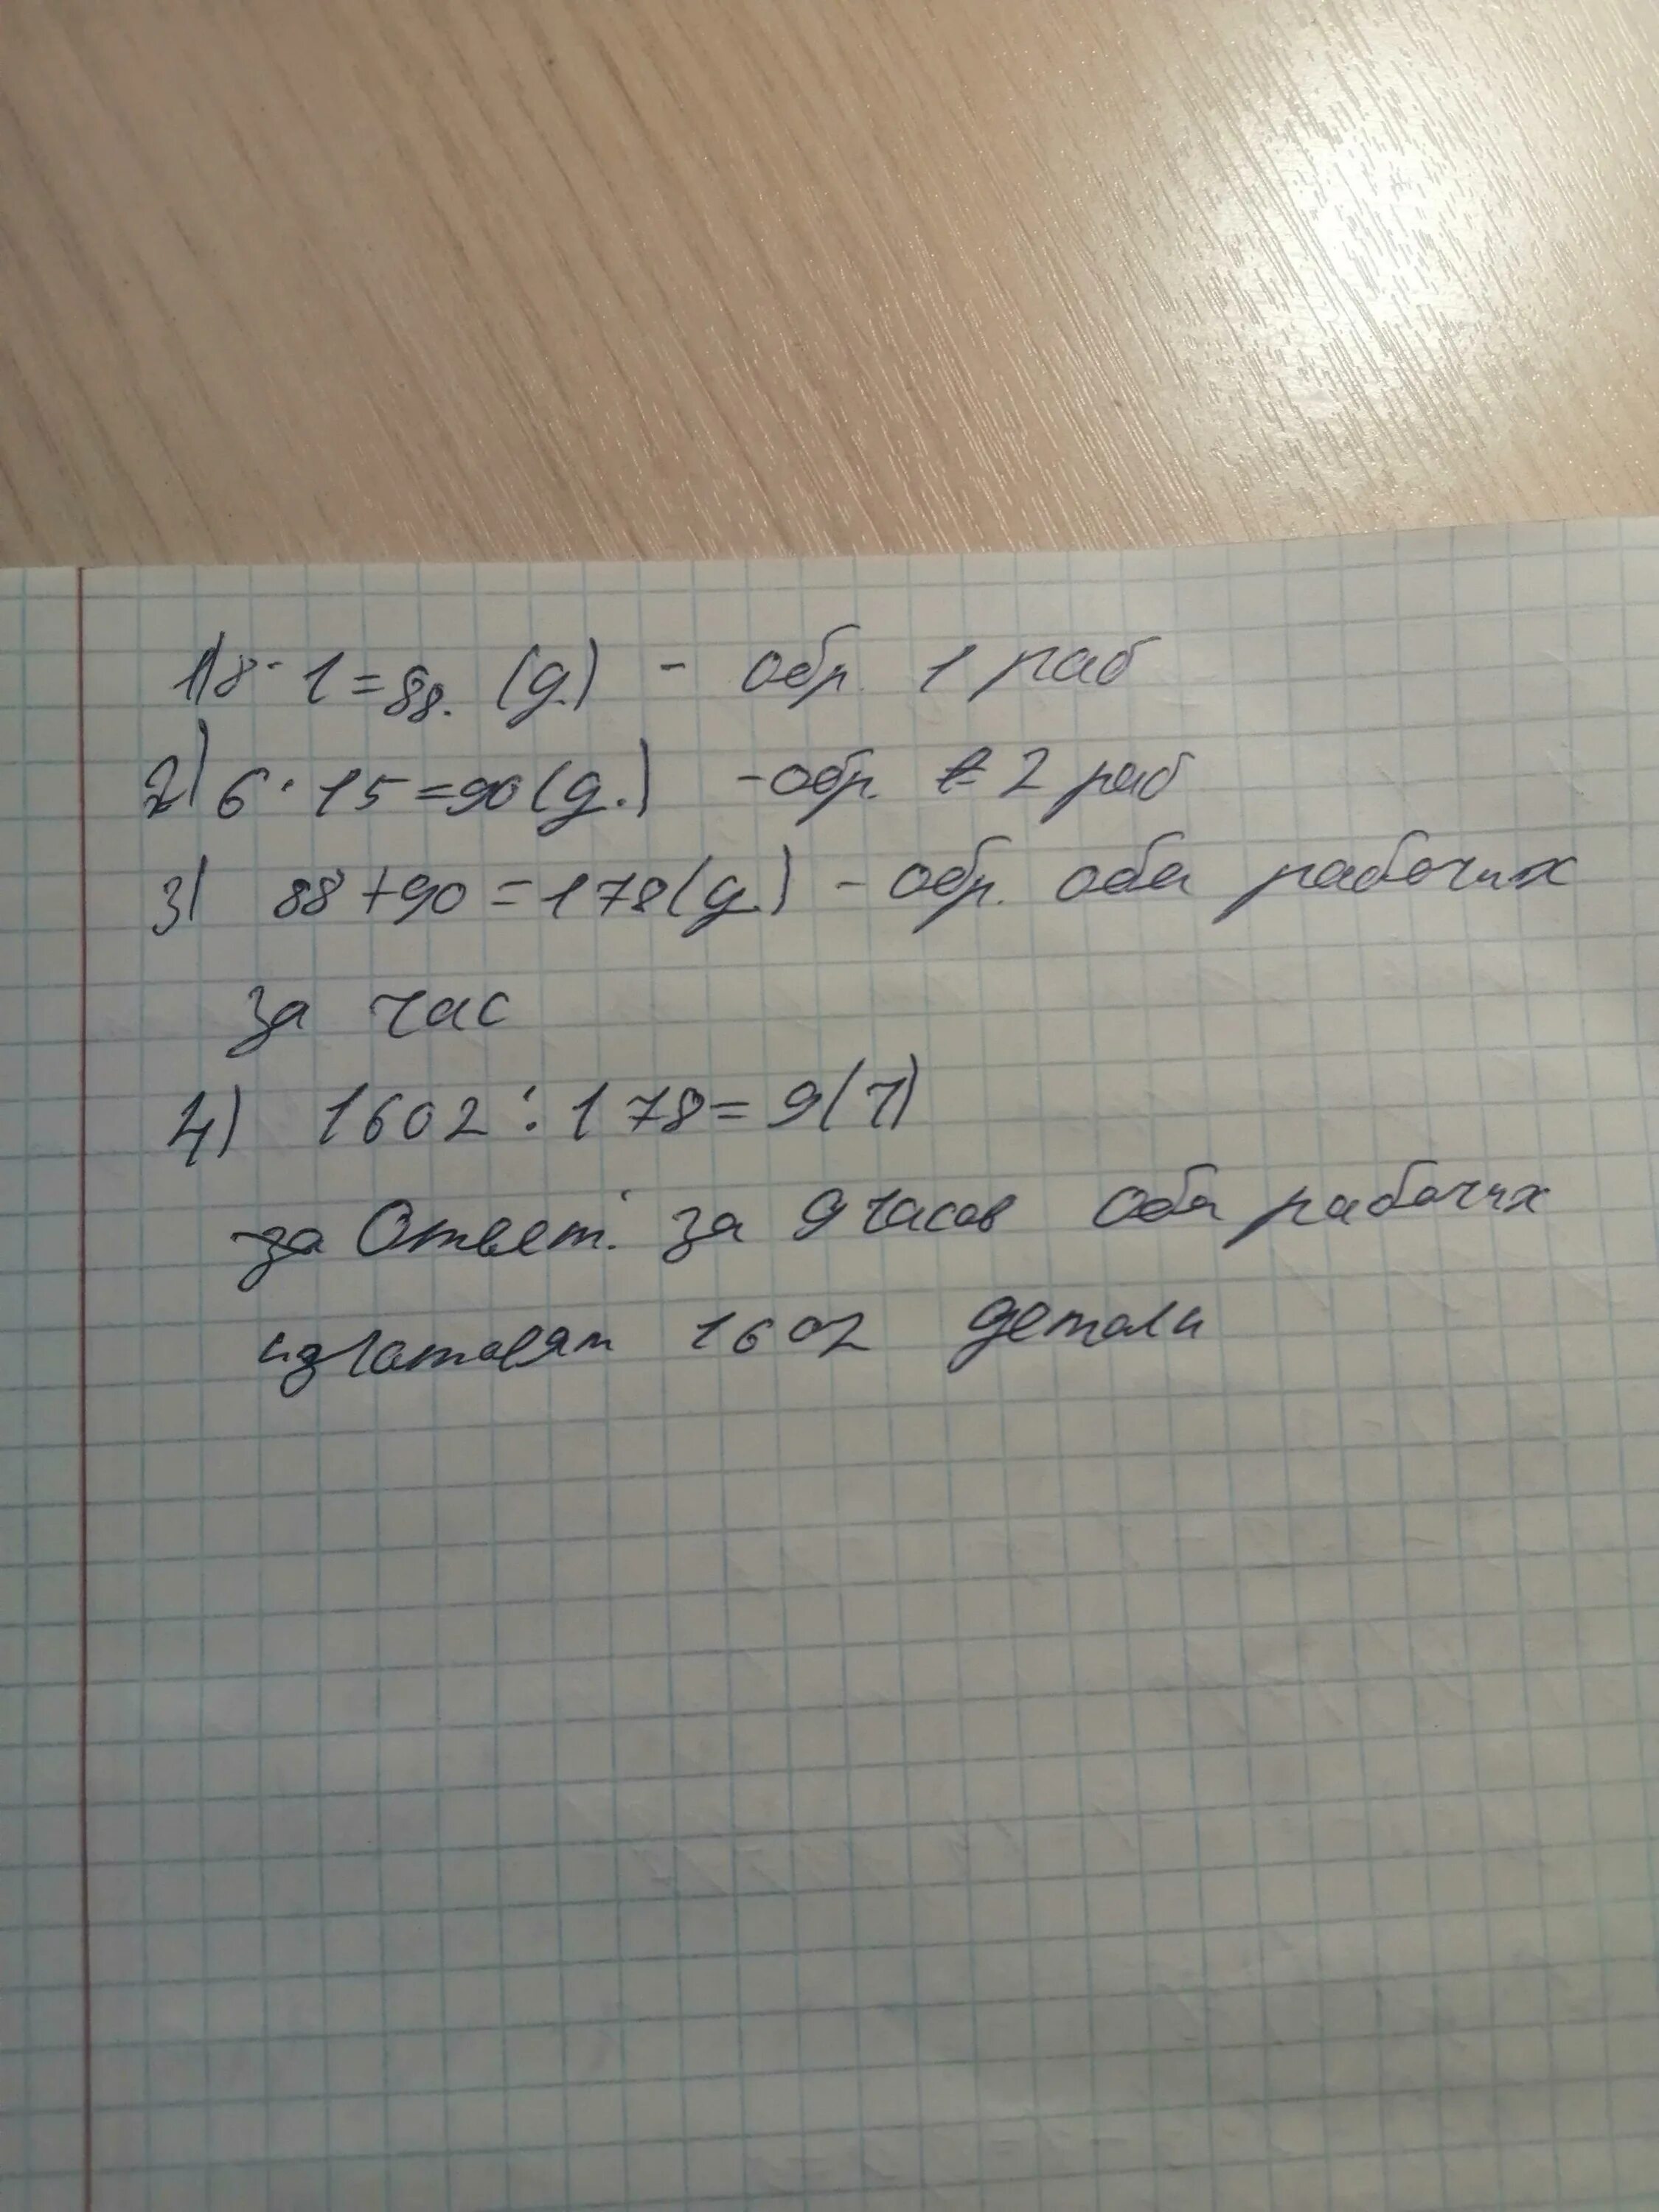 1) 8 · 1 = 88. (д.) - обр. 1 раб
2) 6 · 15 = 90 (д.) - обр. 2 раб
3) 88 + 90 = 178 (д.) - обр. оба рабочих
за час
4) 1602 : 178 = 9 (ч)
за Ответ: за 9 часов оба рабочих
изготовят 1602 детали